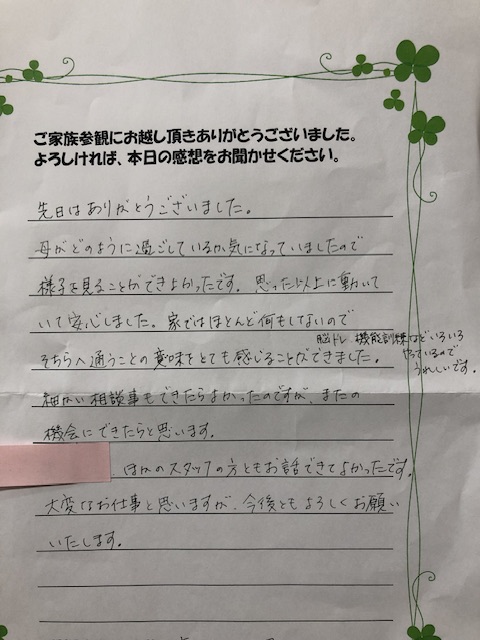 ご家族参観にお越し頂きありがとうございました。
よろしければ、本日の感想をお聞かせください。
先日はありがとうございました。
母がどのように過ごしているか気になっていましたので
様子を見ることができよかったです。思った以上に動いて
いて安心しました。家ではほとんど何もしないので
脳トレ、機能訓練などいろいろ
やっているので
うれしいです。
そちらへ通うことの意味をとても感じることができました。
細かい相談事もできたらよかったのですが、またの
機会にできたらと思います。
ほかのスタッフの方ともお話できてよかったです。
大変なお仕事と思いますが、今後ともよろしくお願い
いたします。